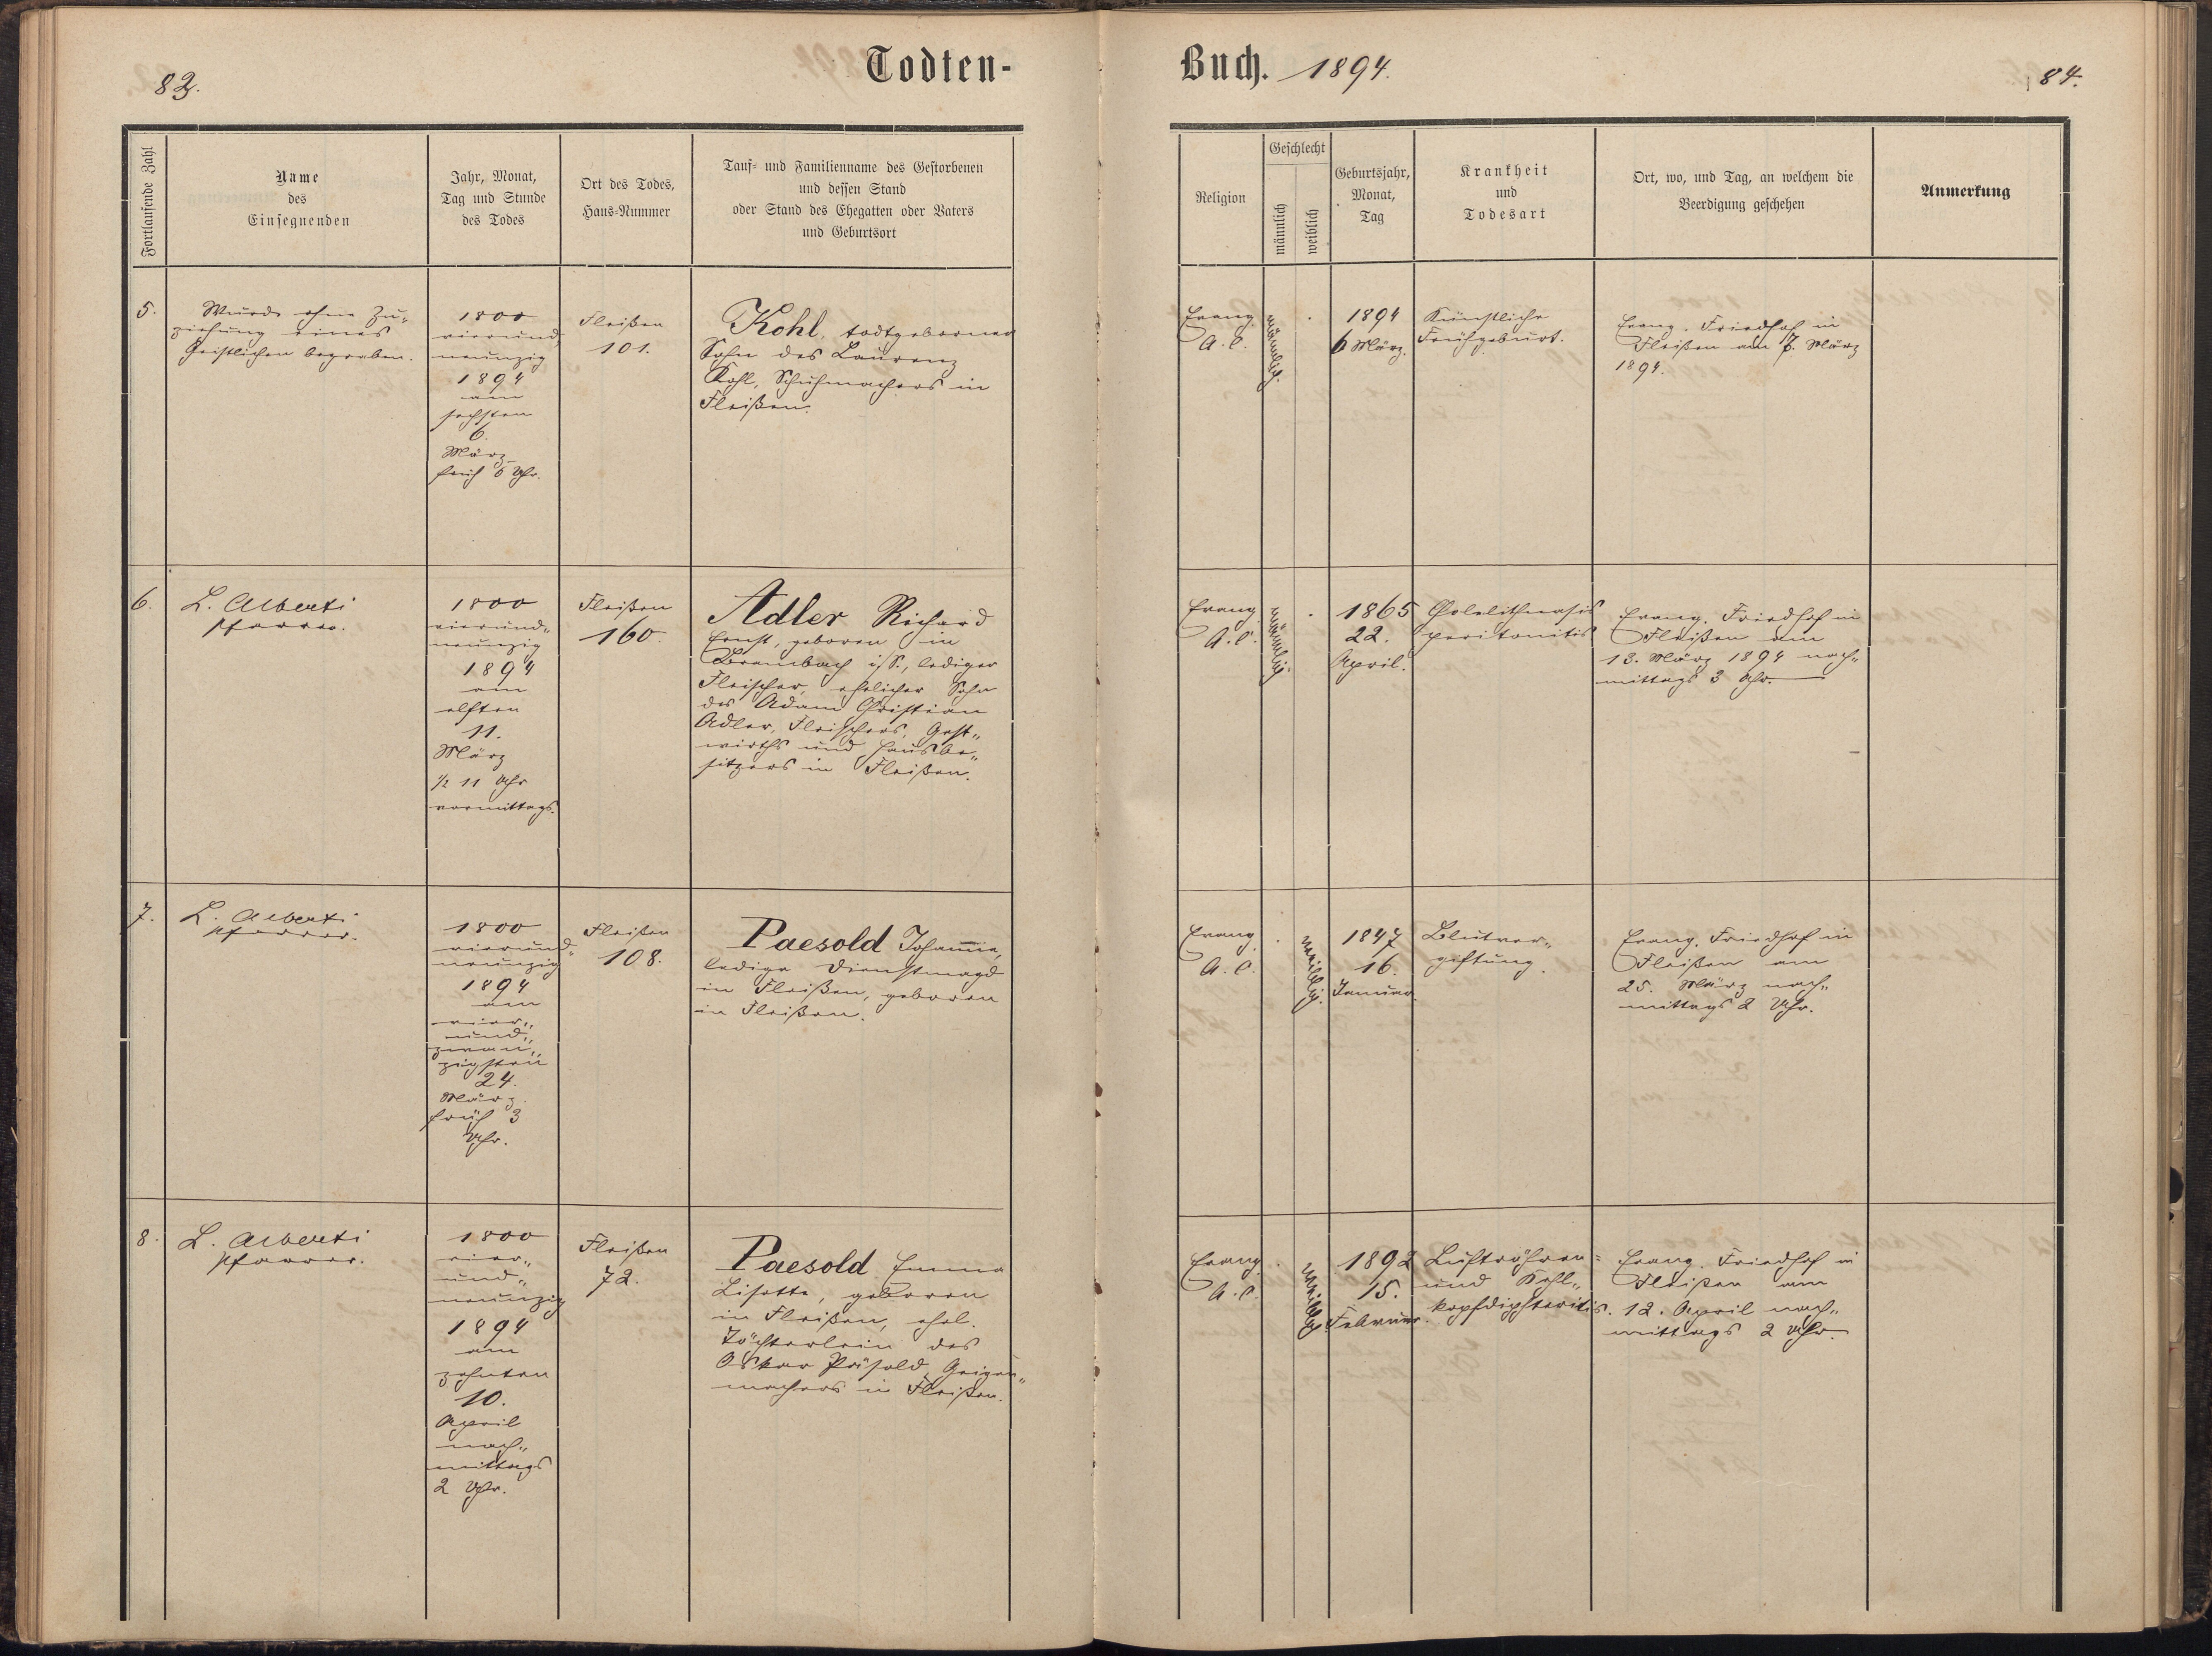 83.
Todten-
Fortlaufende Zahl
Name
des
Einsegnenden
Jahr, Monat,
Tag und Stunde
des Todes
Ort des Todes,
Haus-Nummer
Tauf- und Familienname des Gestorbenen
und dessen Stand
oder Stand des Ehegatten oder Vaters
und Geburtsort
5.
Wurde ohne Zu-
ziehung eines
Geistlichen begraben.
1800
vierund
neunzig
1894
am
sechsten
6.
März
früh 6 Uhr.
Fleißen
101.
Kohl, todtgeborner
Sohn des Laurenz
Kohl, Schuhmachers in
Fleißen.
6.
L. Alberti
Pfarrer.
1800
vierund-
neunzig
1894
am
elften
11.
März
½ 11 Uhr
vormittags.
Fleißen
160
Adler Richard
Ernst, geboren in
Brambach i/S., lediger
Fleischer, ehelicher Sohn
des Adam Christian
Adler, Fleischers, Gast-
wirths und Hausbe-
sitzers in Fleißen.
7.
L. Alberti
Pfarrer.
1800
vierund-
neunzig
1894
am
vier-
und-
zwan-
zigsten
24.
März
früh 3
Uhr.
Fleißen
108.
Paesold Johanna,
ledige Dienstmagd
in Fleißen, geboren
in Fleißen.
8.
L. Alberti
Pfarrer.
1800
vier-
und-
neunzig
1894
am
zehnten
10.
April
nach-
mittags
2 Uhr.
Fleißen
72.
Paesold Emma
Lisette, geboren
in Fleißen, ehel.
Töchterlein des
Oskar Päsold, Geigen-
machers in Fleißen.
Buch. 1894.
84.
Religion
Geschlecht
männlich
weiblich
Geburtsjahr,
Monat,
Tag
Krankheit
und
Todesart
Ort, wo, und Tag, an welchem die
Beerdigung geschehen
Anmerkung
Evang.
A. C.
männlich.
1894
6 März.
Künstliche
Frühgeburt.
Evang. Friedhof in
Fleißen am 7. März
1894.
Evang.
A. C.
männlich.
1865
22.
April.
Cholelithiasis
peritonitis
Evang. Friedhof in
Fleißen am
13. März 1894 nach-
mittags 3 Uhr.
Evang.
A. C.
weiblich.
1847
16.
Januar.
Blutver-
giftung.
Evang. Friedhof in
Fleißen am
25. März nach-
mittags 2 Uhr.
Evang.
A. C.
weiblich
1892
15.
Februar.
Luftröhren-
und Kehl-
kopfdiphteritis.
Evang. Friedhof in
Fleißen am
12. April nach-
mittags 2 Uhr.